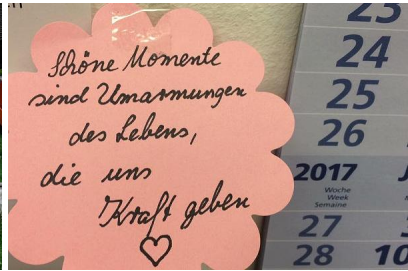 Schöne Momente
sind Umarmungen
des Lebens,
die uns
Kraft geben
23
24
25
26
2017
Woche
Week
Semaine
27
28 10